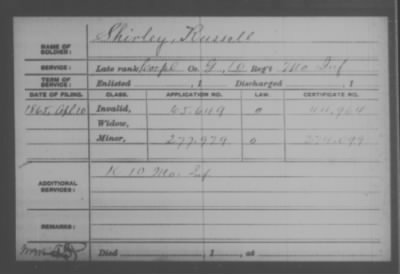 NAME OF SOLDIER: Shirley, Russell
SERVICE: Late rank Corpl Co. G, 10 Reg't Mo. Inf
TERM OF SERVICE: Enlisted , 1 Discharged , 1
DATE OF FILING. CLASS. APPLICATION NO. LAW. CERTIFICATE NO.
1865, Apl 10 Invalid, 65.649 o
Widow,
Minor, 277.979 o
ADDITIONAL SERVICES: K 10 Mo. Inf
REMARKS:
Died , 1 , at